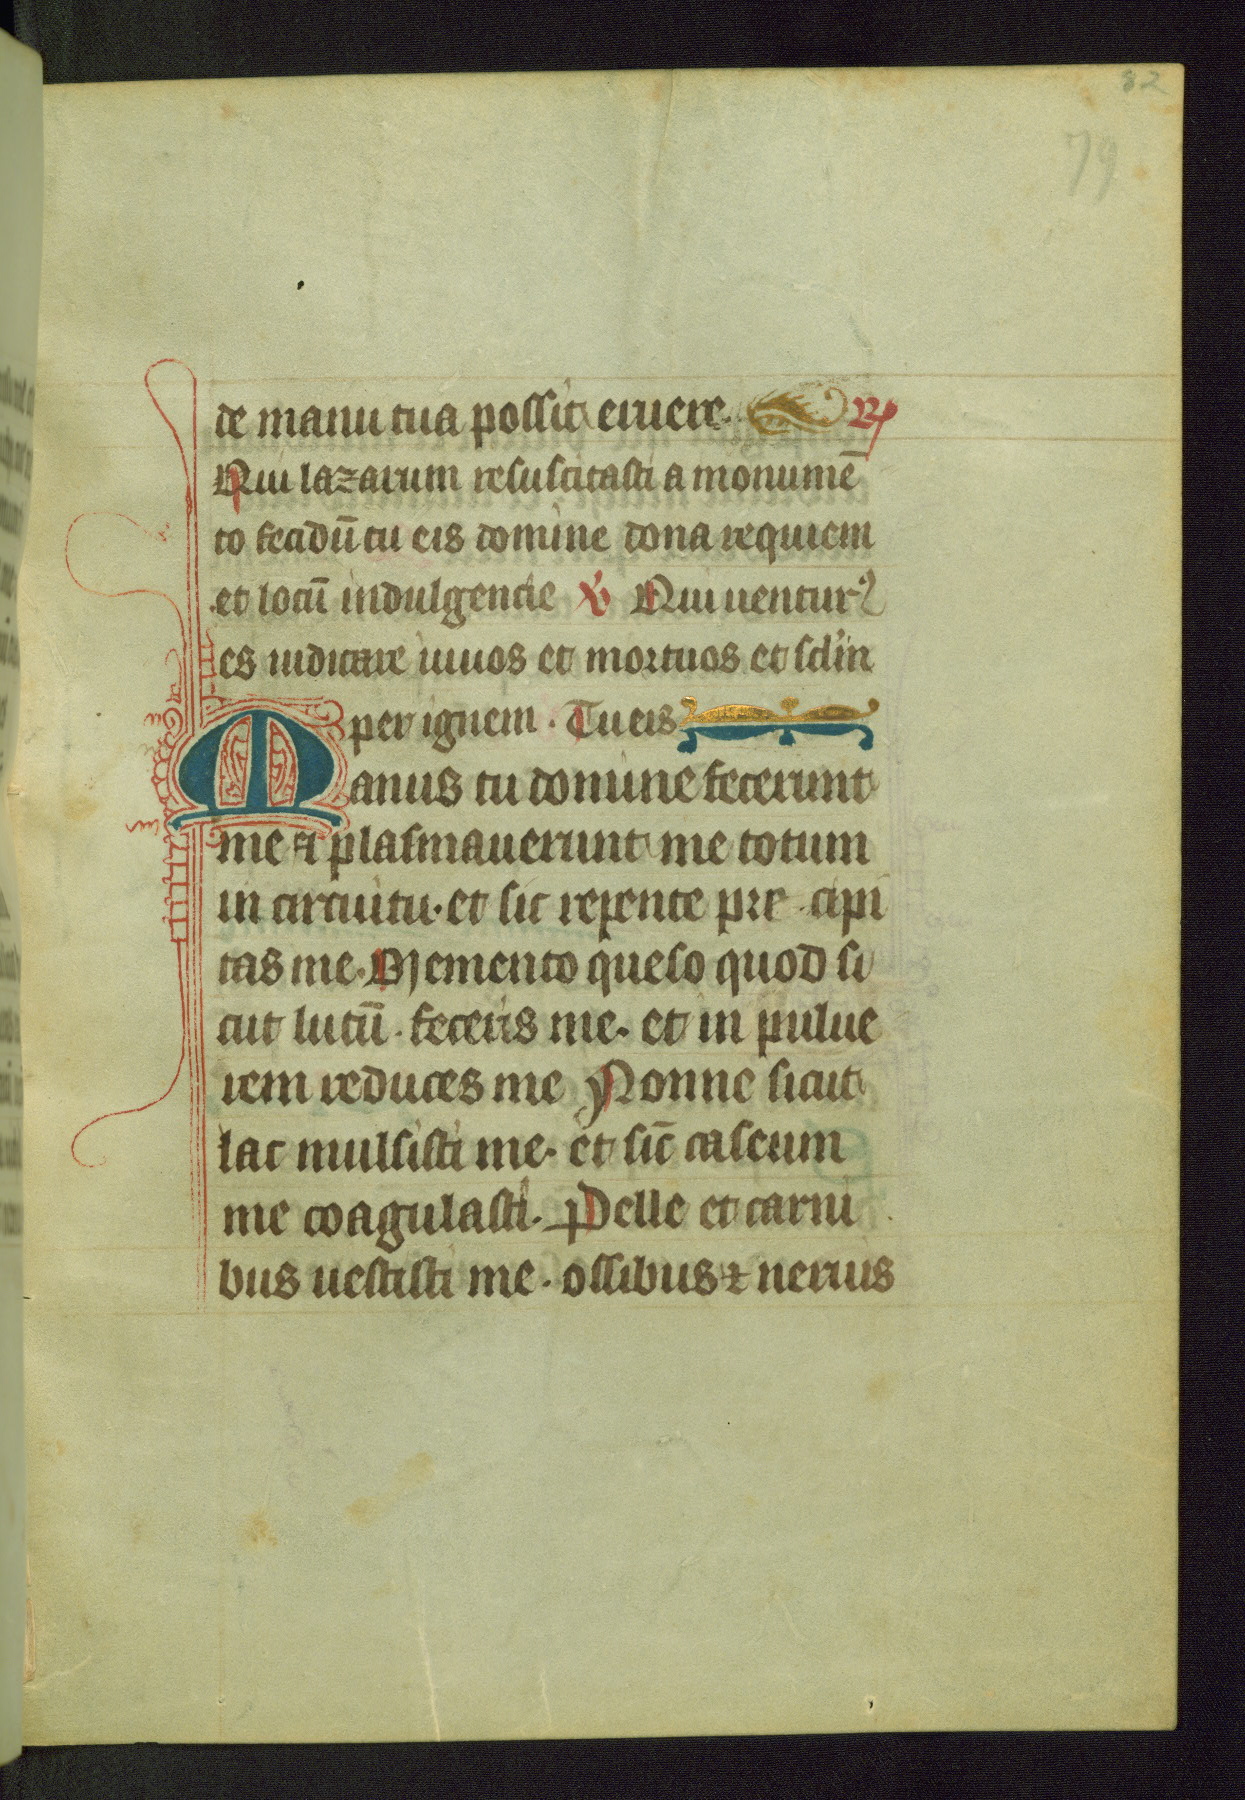 82
79
de manu tua possit eruere. Rp
Qui lazarum resuscitasti a monumē
to fetidū tu eis domine dona requiem
et locū indulgencie V Qui uentur⁹
es iudicare uiuos et mortuos et sclm
per ignem. Tu eis
Manus tu domine fecerunt
me et plasmauerunt me totum
in circuitu. et sic repente pre cipi
tas me. Memento queso quod si
cut lutū. feceris me. et in pulue
rem reduces me Nonne sicut
lac mulsisti me. et sic̄ caseum
me coagulasti. Pelle et carni
bus uestisti me. ossibus ⁊ neruis